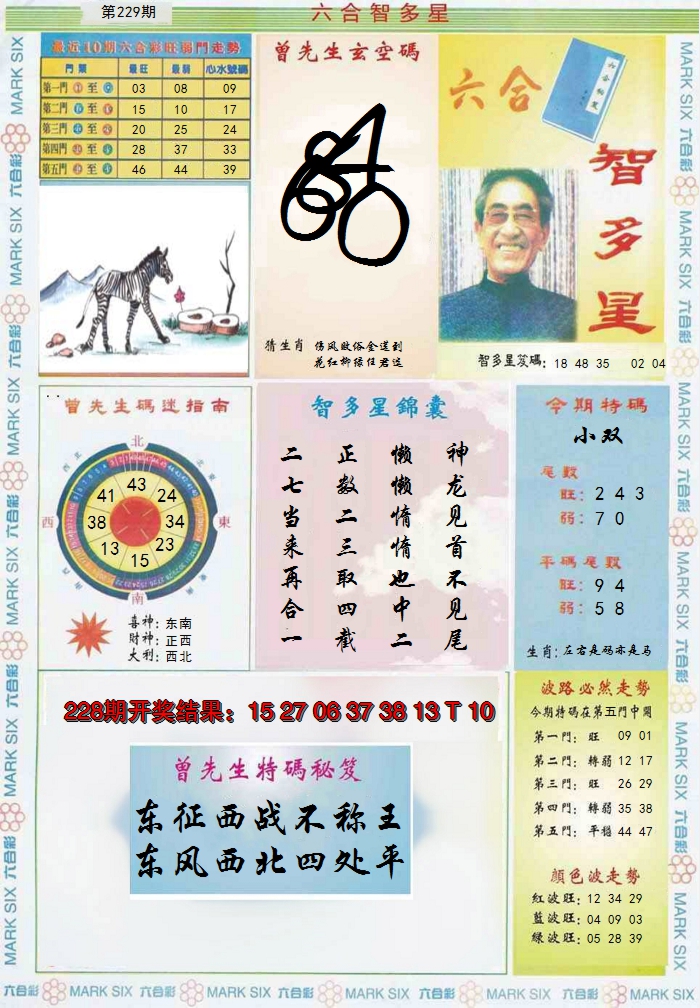 第229期
六合智多星
最近10期六合彩旺弱門走勢
門類 最旺 最弱 心水號碼
第一門 至 03 08 09
第二門 至 15 10 17
第三門 至 20 25 24
第四門 至 28 37 33
第五門 至 46 44 39
曾先生玄空碼
猜生肖 伤风败俗金送到
花红柳绿任君运
六合
智多星
智多星笈碼: 18 48 35 02 04
曾先生碼迷指南
北
西 東
南
43
24
34
23
15
13
38
41
喜神: 东南
財神: 正西
大利: 西北
智多星錦囊
神龙见首不见尾
懒懒惰惰也中二
正数二三取四截
二七当来再合一
今期特碼
小双
尾數
旺: 2 4 3
弱: 7 0
平碼尾數
旺: 9 4
弱: 5 8
生肖: 左右是码亦是马
228期开奖结果: 15 27 06 37 38 13 T 10
曾先生特碼秘笈
东征西战不称王
东风西北四处平
波路必然走勢
今期特碼在第五門中開
第一門: 旺 09 01
第二門: 轉弱 12 17
第三門: 旺 26 29
第四門: 轉弱 35 38
第五門: 平穩 44 47
顏色波走勢
紅波旺: 12 34 29
藍波旺: 04 09 03
綠波旺: 05 28 39
MARK SIX 六合彩